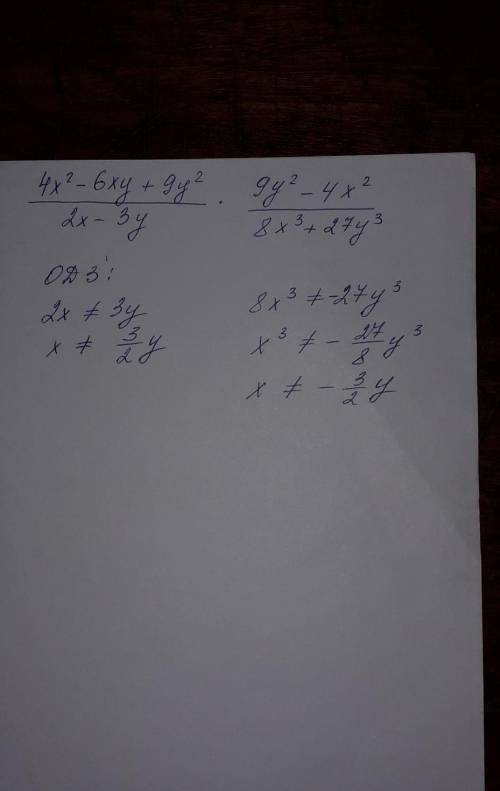 (4x² − 6xy + 9y²)/(2x − 3y) · (9y² − 4x²)/(8x³ + 27y³)
ОДЗ:
2x ≠ 3y
x ≠ 3/2 y
8x³ ≠ -27y³
x³ ≠ − 27/8 y³
x ≠ − 3/2 y